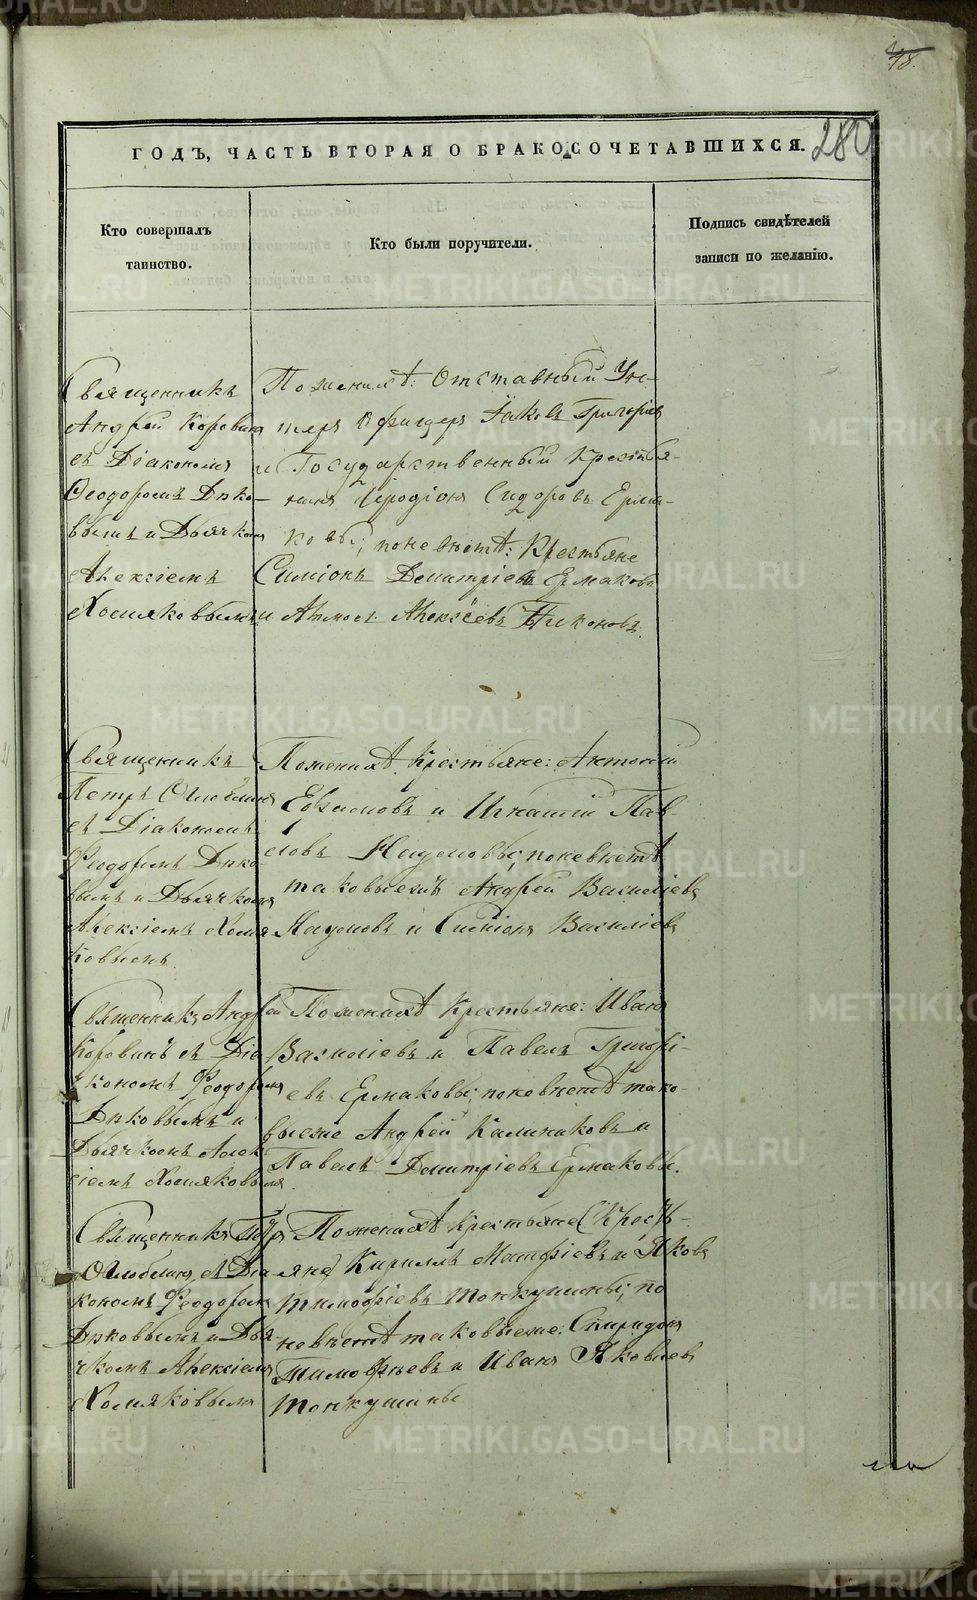 48.
280
ГОДЪ, ЧАСТЬ ВТОРАЯ О БРАКОСОЧЕТАВШИХСЯ.
Кто совершалъ
таинство.
Кто были поручители.
Подпись свидѣтелей
записи по желанію.
Священникъ
Андрей Коровинъ
съ Діакономъ
Ѳеодоромъ
и Дьячкомъ
Алексіемъ
Хомяковымъ
По женихѣ: Отставный Ун-
теръ Офицеръ Іаковъ Григорьевъ
и Государственный Крестья-
нинъ Иродіонъ Сидоровъ Ерма-
ковы; по невѣстѣ: Крестьяне
Симіонъ Димитріевъ Ермаковъ
и Алексѣевъ Никоновъ.
Священникъ
Петръ
съ Діакономъ
Ѳеодоромъ
и Дьячкомъ
Алексіемъ Хомя-
ковымъ
По женихѣ Крестьяне: Антоній
Ефимовъ и Игнатій Пав-
ловъ Наумовы; по невѣстѣ
таковыежъ Андрей Василіевъ
Наумовъ и Симіонъ Василіевъ
Священникъ Андрей
Коровинъ съ Діа-
кономъ Ѳеодоромъ
и
Дьячкомъ Алек-
сіемъ Хомяковымъ
По женихѣ Крестьяне: Иванъ
Василіевъ и Павелъ Григорі-
евъ Ермаковы; по невѣстѣ тако-
выеже Андрей Калиниковъ и
Павелъ Димитріевъ Ермаковы.
Священникъ Петръ
съ Діа-
кономъ Ѳеодоромъ
и Дья-
чкомъ Алексіемъ
Хомяковымъ
По женихѣ Крестьяне (Кресть-
яне) Кириллъ Матфіевъ и Яковъ
Тимофіевъ Тонкушины; по
невѣстѣ таковыеже: Спиридонъ
Тимофѣевъ и Иванъ Яковлевъ
Тонкушины
METRIKI.GASO-URAL.RU